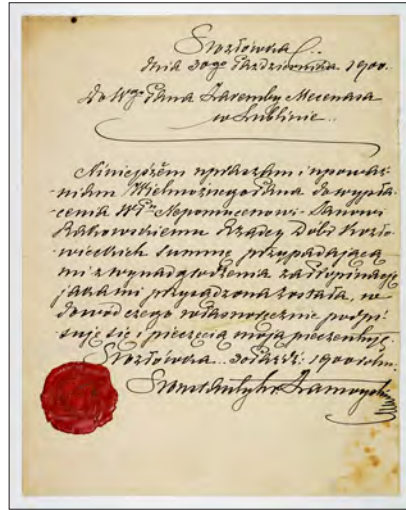 Kozłówka
dnia 30go Października 1900.
Do Wgo Pana Zaremby Mecenasa
w Lublinie.
Niniejszém upraszam i upoważ-
niam Wielmożnego Pana do wypła-
cenia WPn Nepomucenowi Janowi
Rakowskiemu Rządcy Dóbr Kozło-
wieckich summę przypadającą
mi z wynagrodzenia za propinację
jaka mi przysądzona została, w
dowód czego własnoręcznie podpi-
suję się i pieczęcią moją pieczentuję.
Kozłówka 30 Paźdź: 1900 roku.
Konstanty hr. Zamoyski